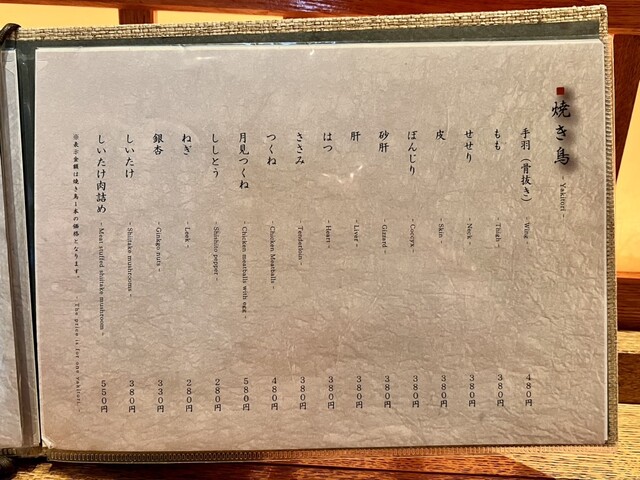 焼き鳥 - Yakitori -
手羽（骨抜き） - Wing - 480円
もも - Thigh - 380円
せせり - Neck - 380円
皮 - Skin - 380円
ぼんじり - Coccyx - 380円
砂肝 - Gizzard - 380円
肝 - Liver - 380円
はつ - Heart - 380円
ささみ - Tenderloin - 380円
つくね - Chicken Meatballs - 480円
月見つくね - Chicken meatballs with egg - 580円
ししとう - Shishito pepper - 280円
ねぎ - Leek - 280円
銀杏 - Ginkgo nuts - 330円
しいたけ - Shiitake mushrooms - 380円
しいたけ肉詰め - Meat stuffed shiitake mushroom - 550円
※表示金額は焼き鳥1本の価格となります。 - The price is for one yakitori. -